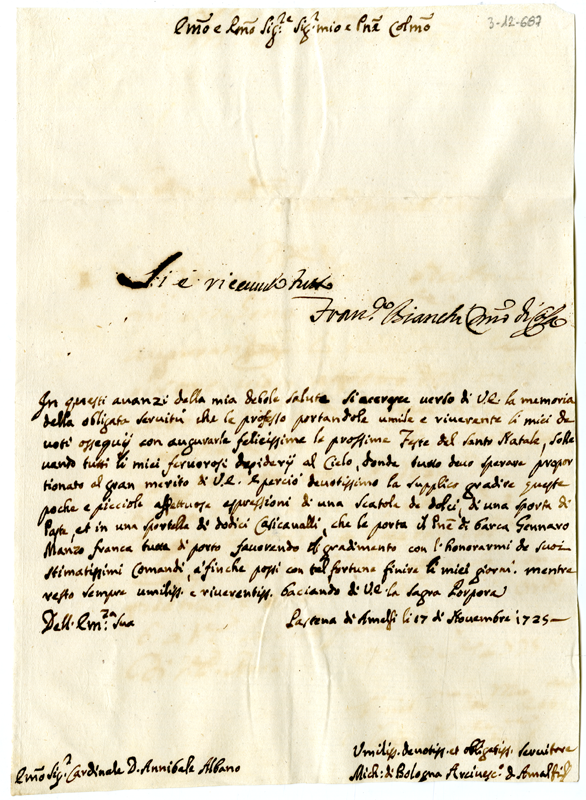 3-12-687
Emõ e Rmõ Sig.re Sig.r mio e Pnẽ Colmõ
Si è ricevuto tutto
Fran.co Bianchi Mrõ di Casa
In questi avanzi della mia debole salute si accresce verso di V.E. la memoria
della obligata servitù che le professo portandole umile e riverente li miei de
voti ossequij con augurarle felicissime le prossime Feste del Santo Natale, solle
vando tutti li miei fervorosi desiderij al Cielo, donde tutto devo sperare propor
tionato al gran merito di V.E. E perciò devotissimo la supplico gradire queste
poche e picciole affettuose espressioni di una Scatola de dolci, di una sporta di
Paste, et in una sportella di dodici Casicavalli, che le porta il Pnẽ di barca Gennaro
Manzo franca tutta di porto favorendo il gradimento con l'honorarmi de suoi
stimatissimi Comandi, a finche possi con tal fortuna finire li miei giorni. mentre
resto sempre umiliss. e riverentiss. baciando di V.E. la Sagra Porpora
Dell. Em.za Sua
Pastena di Amalfi li 17 di Novembre 1725
Umiliss. devotiss. et obligatiss. servitore
Emõ Sig.r Cardinale D. Annibale Albano
Mich: di Bologna Arcivesc.o d. Amalfi